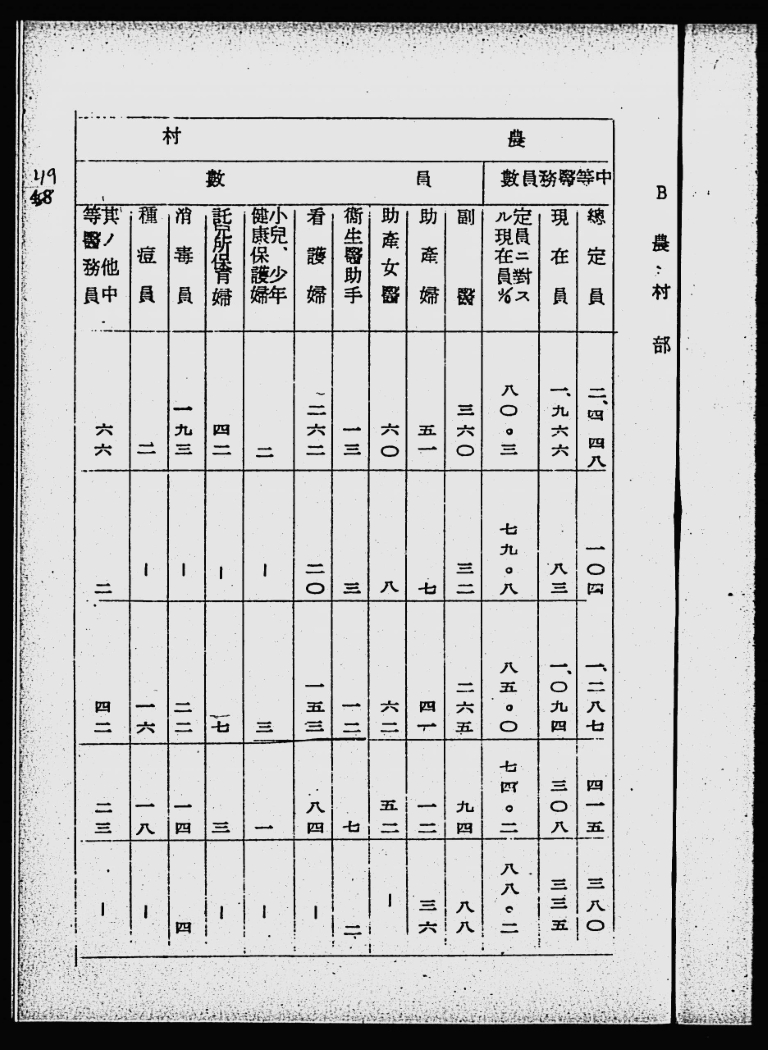 B 農村部
農村
中等醫務員數
員數
總定員 二、四四八 一〇四 一、二八七 四一五 三八〇
現在員 一、九六六 八三 一、〇九四 三〇八 三三五
定員ニ對スル現在員% 八〇。三 七九。八 八五。〇 七四。二 八八。二
副醫 三六〇 三二 二六五 九四 八八
助產婦 五一 七 四一 一二 三六
助產女醫 六〇 八 六二 五二 ー
衞生醫助手 一三 三 一二 七 二
看護婦 二六二 二〇 一五三 八四 ー
小兒、少年健康保護婦 二 ー 三 一 ー
託兒所保育婦 四二 ー 七 三 ー
消毒員 一九三 ー 二二 一四 四
種痘員 二 ー 一六 一八 ー
其ノ他中等醫務員 六六 二 四二 二三 ー
49
48